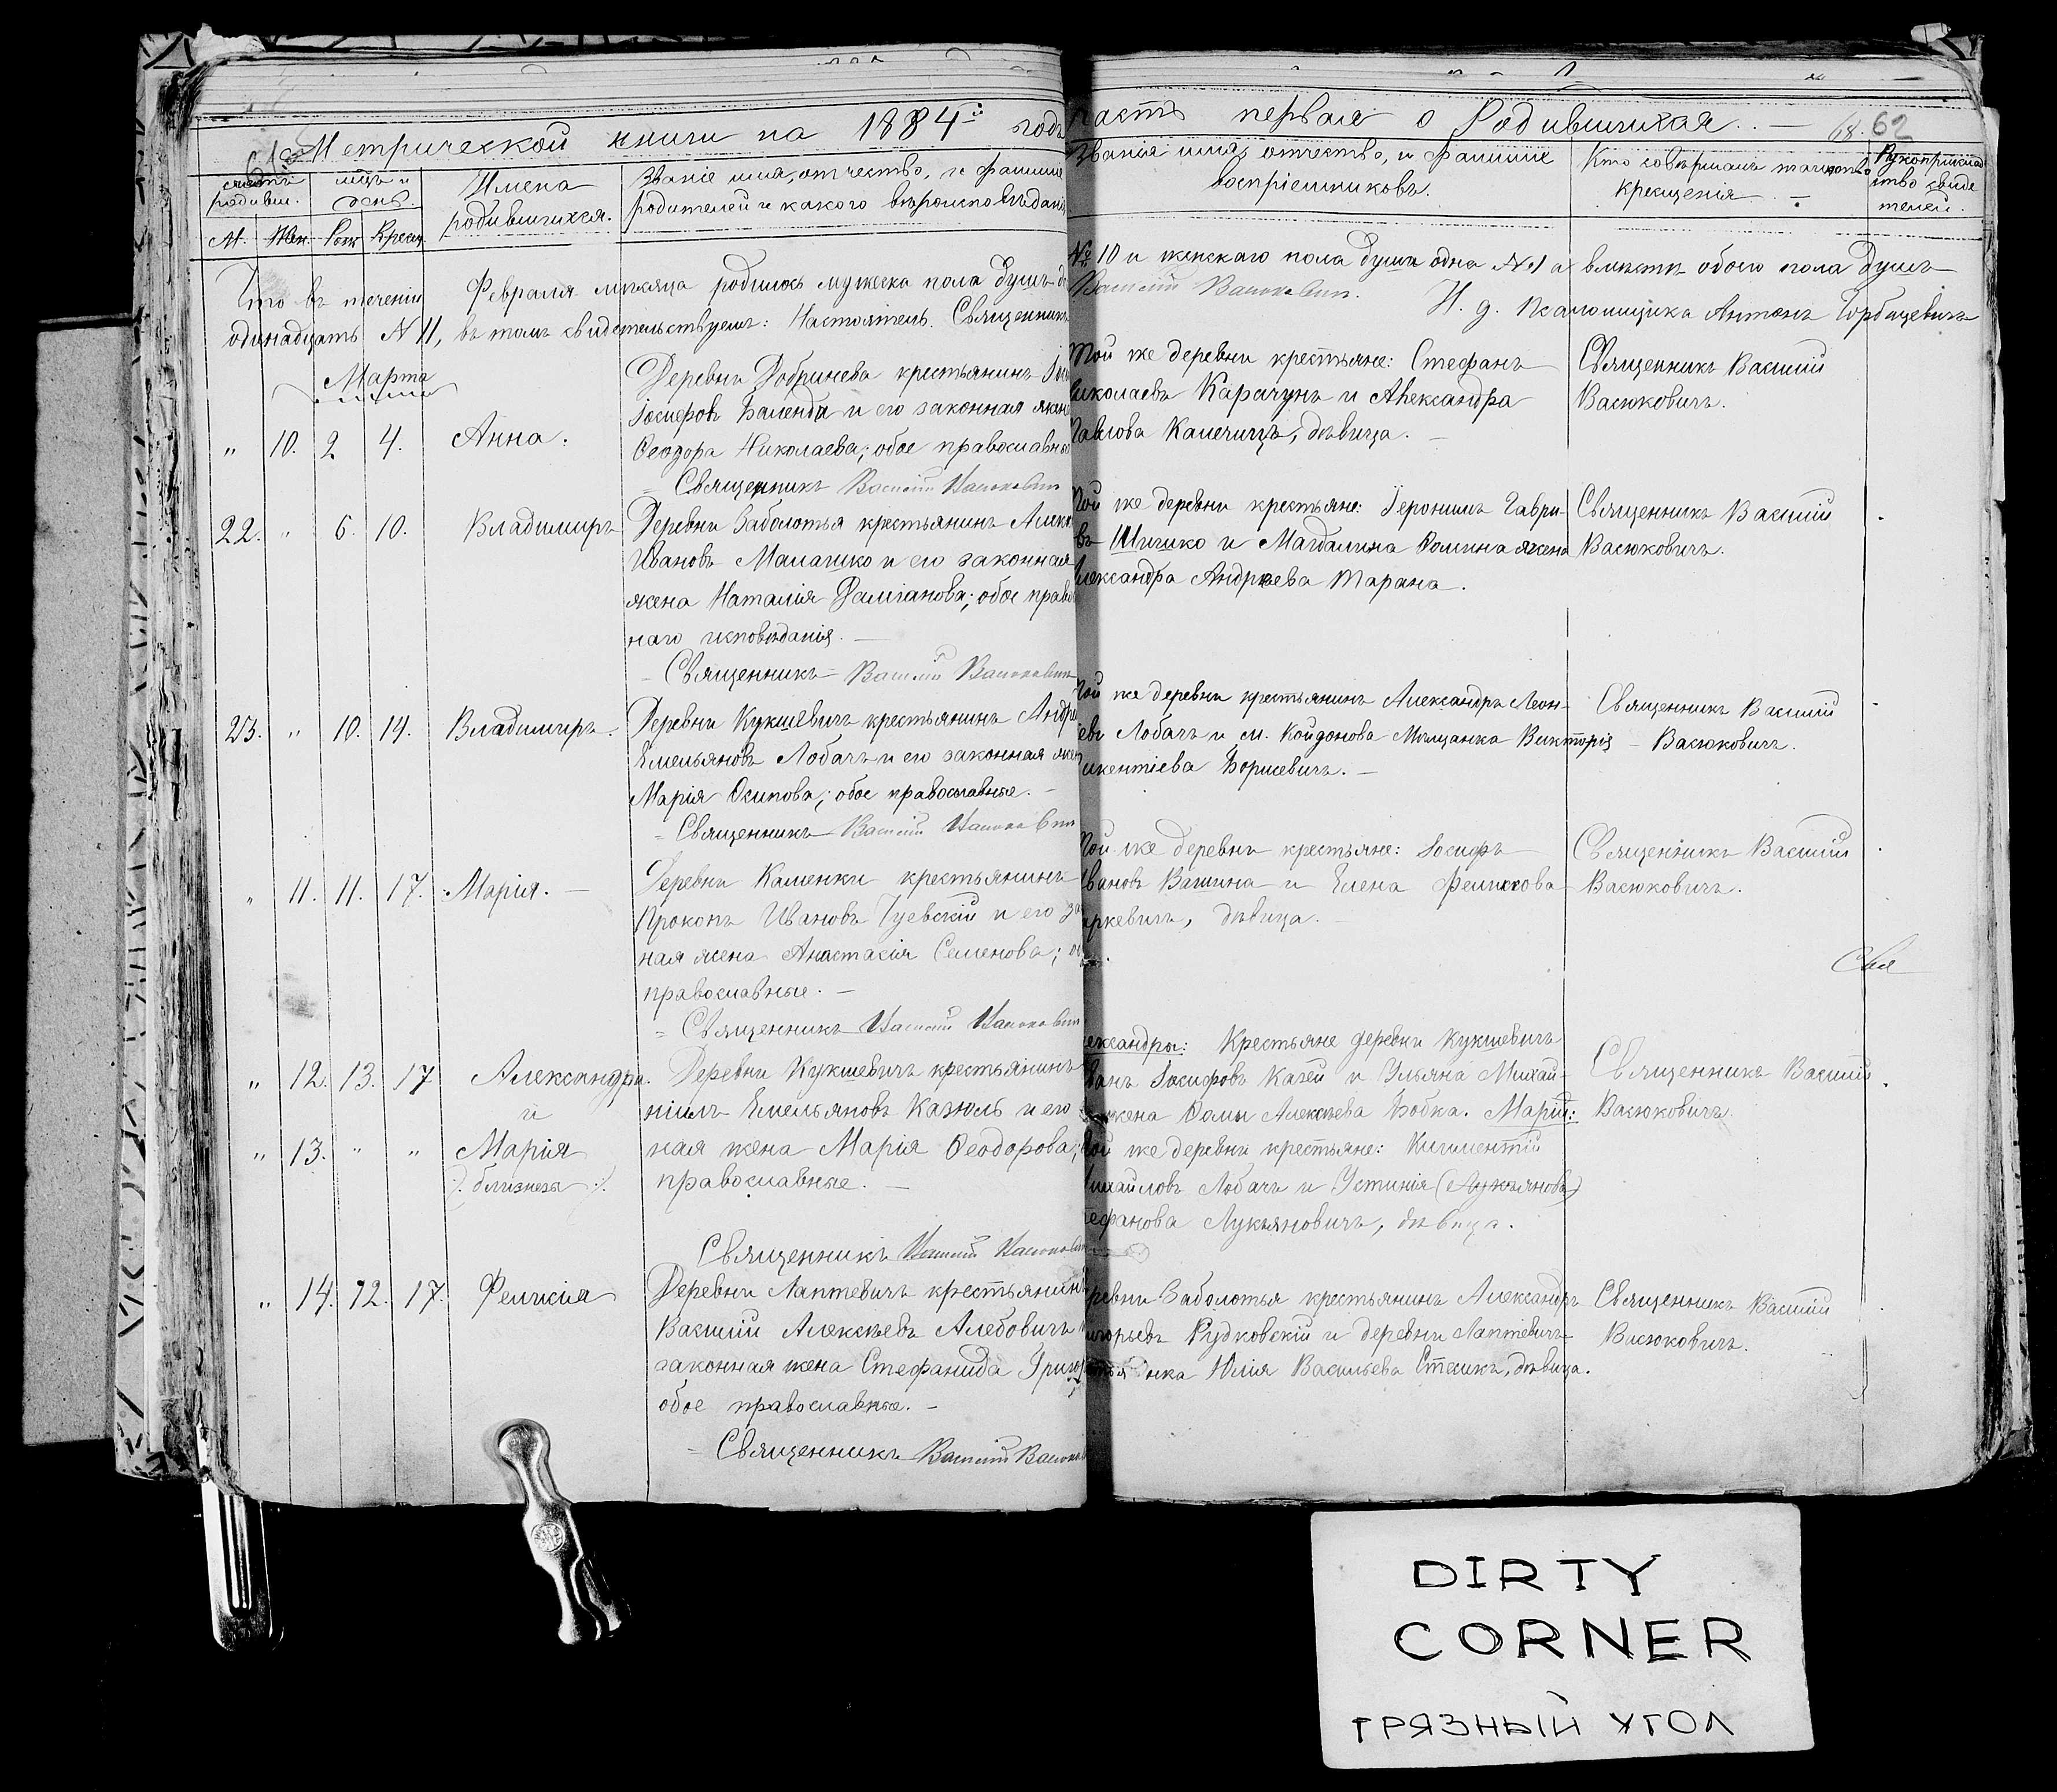 Метрической книги на 1884й годъ часть первая о Родившихся. 68. 62
счетъ родивш.
мцъ и день.
М. Жен. Рож Крещ.
Имена
родившихся.
Званіе имя, отчество, и фамилія
родителей и какого вѣроисповѣданія
Званія имя, отчество, и фамилія
воспріемниковъ.
Кто совершалъ таинство
крещенія
Рукоприклад
ство свиде
телей.
Что въ теченіи Февраля мѣсяца родилось мужеска пола душъ
№ 10 и женскаго пола душа одна № 1 а вместѣ обоего пола душъ
одинадцать № 11, въ томъ свидетельствуемъ: Настоятель. Священникъ
Василій Васюковичъ. И. д. Псаломщика Антонъ Горбацевичъ
Марта
" 10. 2 4. Анна.
Деревни Добринева крестьянинъ
Іосифовъ Баленда и его законная жена
Ѳеодора Николаева; обое православные
Священникъ Василій Васюковичъ
Той же деревни крестьяне: Стефанъ
Николаевъ Карачунъ и Александра
Павлова Капечицъ, дѣвица.
Священникъ Василій
Васюковичъ.
22. " 6. 10. Владимиръ
Деревни Заболотья крестьянинъ
Ивановъ Малашко и его законная
жена Наталія Даміанова; обое право
наго исповѣданія.
Священникъ Василій Васюковичъ
Той же деревни крестьяне: Іеронимъ Гаври
въ Шишко и Магдалина Ѳомина жена
Александра Андреева Тарана.
Священникъ Василій
Васюковичъ.
23. " 10. 14. Владимиръ.
Деревни Кукшевичъ крестьянинъ Андрей
Емельяновъ Лобачъ и его законная жена
Марія Осипова; обое православные.
Священникъ Василій Васюковичъ
Той же деревни крестьянинъ Александръ Леон
евъ Лобачъ и м. Койдонова Мѣщанка Викторія
Викентіева Борисевичъ.
Священникъ Василій
Васюковичъ.
" 11. 11. 17. Марія.
Деревни Каменки крестьянинъ
Прокопъ Ивановъ Гуевскій и его за
ная жена Анастасія Семенова;
православные.
Священникъ Василій Васюковичъ
Той же деревни крестьяне: Іосифъ
Ивановъ Вашина и Елена Феликсова
аркевичъ, дѣвица.
Священникъ Василій
Васюковичъ.
Свя
" 12. 13. 17 Александра.
и
" 13. " " Марія
близнецы
Деревни Кукшевичъ крестьянинъ
ніилъ Емельяновъ Казюль и его
ная жена Марія Ѳеодорова;
православные.
Священникъ Василій Васюковичъ
Александры: Крестьяне деревни Кукшевичъ
Иванъ Іосифовъ Казей и Ульяна Михай
жена Ѳомы Алексѣева Бобка. Маріи:
Той же деревни крестьяне: Климентій
Михайловъ Лобачъ и Устинія (Лукьянова)
Стефанова Лукьяновичъ, дѣвица.
Священникъ Василій
Васюковичъ.
" 14. 12. 17. Феликсія
Деревни Лаптевичъ крестьянинъ
Василій Алексѣевъ Алебовичъ и
законная жена Стефанида Григор
обое православные.
Священникъ Василій Васюков
Деревни Заболотья крестьянинъ Александръ
Григорьевъ Рудковскій и деревни Лаптевичъ
крестьянка Юлія Васильева Сташкъ, дѣвица.
Священникъ Василій
Васюковичъ.
DIRTY
CORNER
ГРЯЗНЫЙ УГОЛ